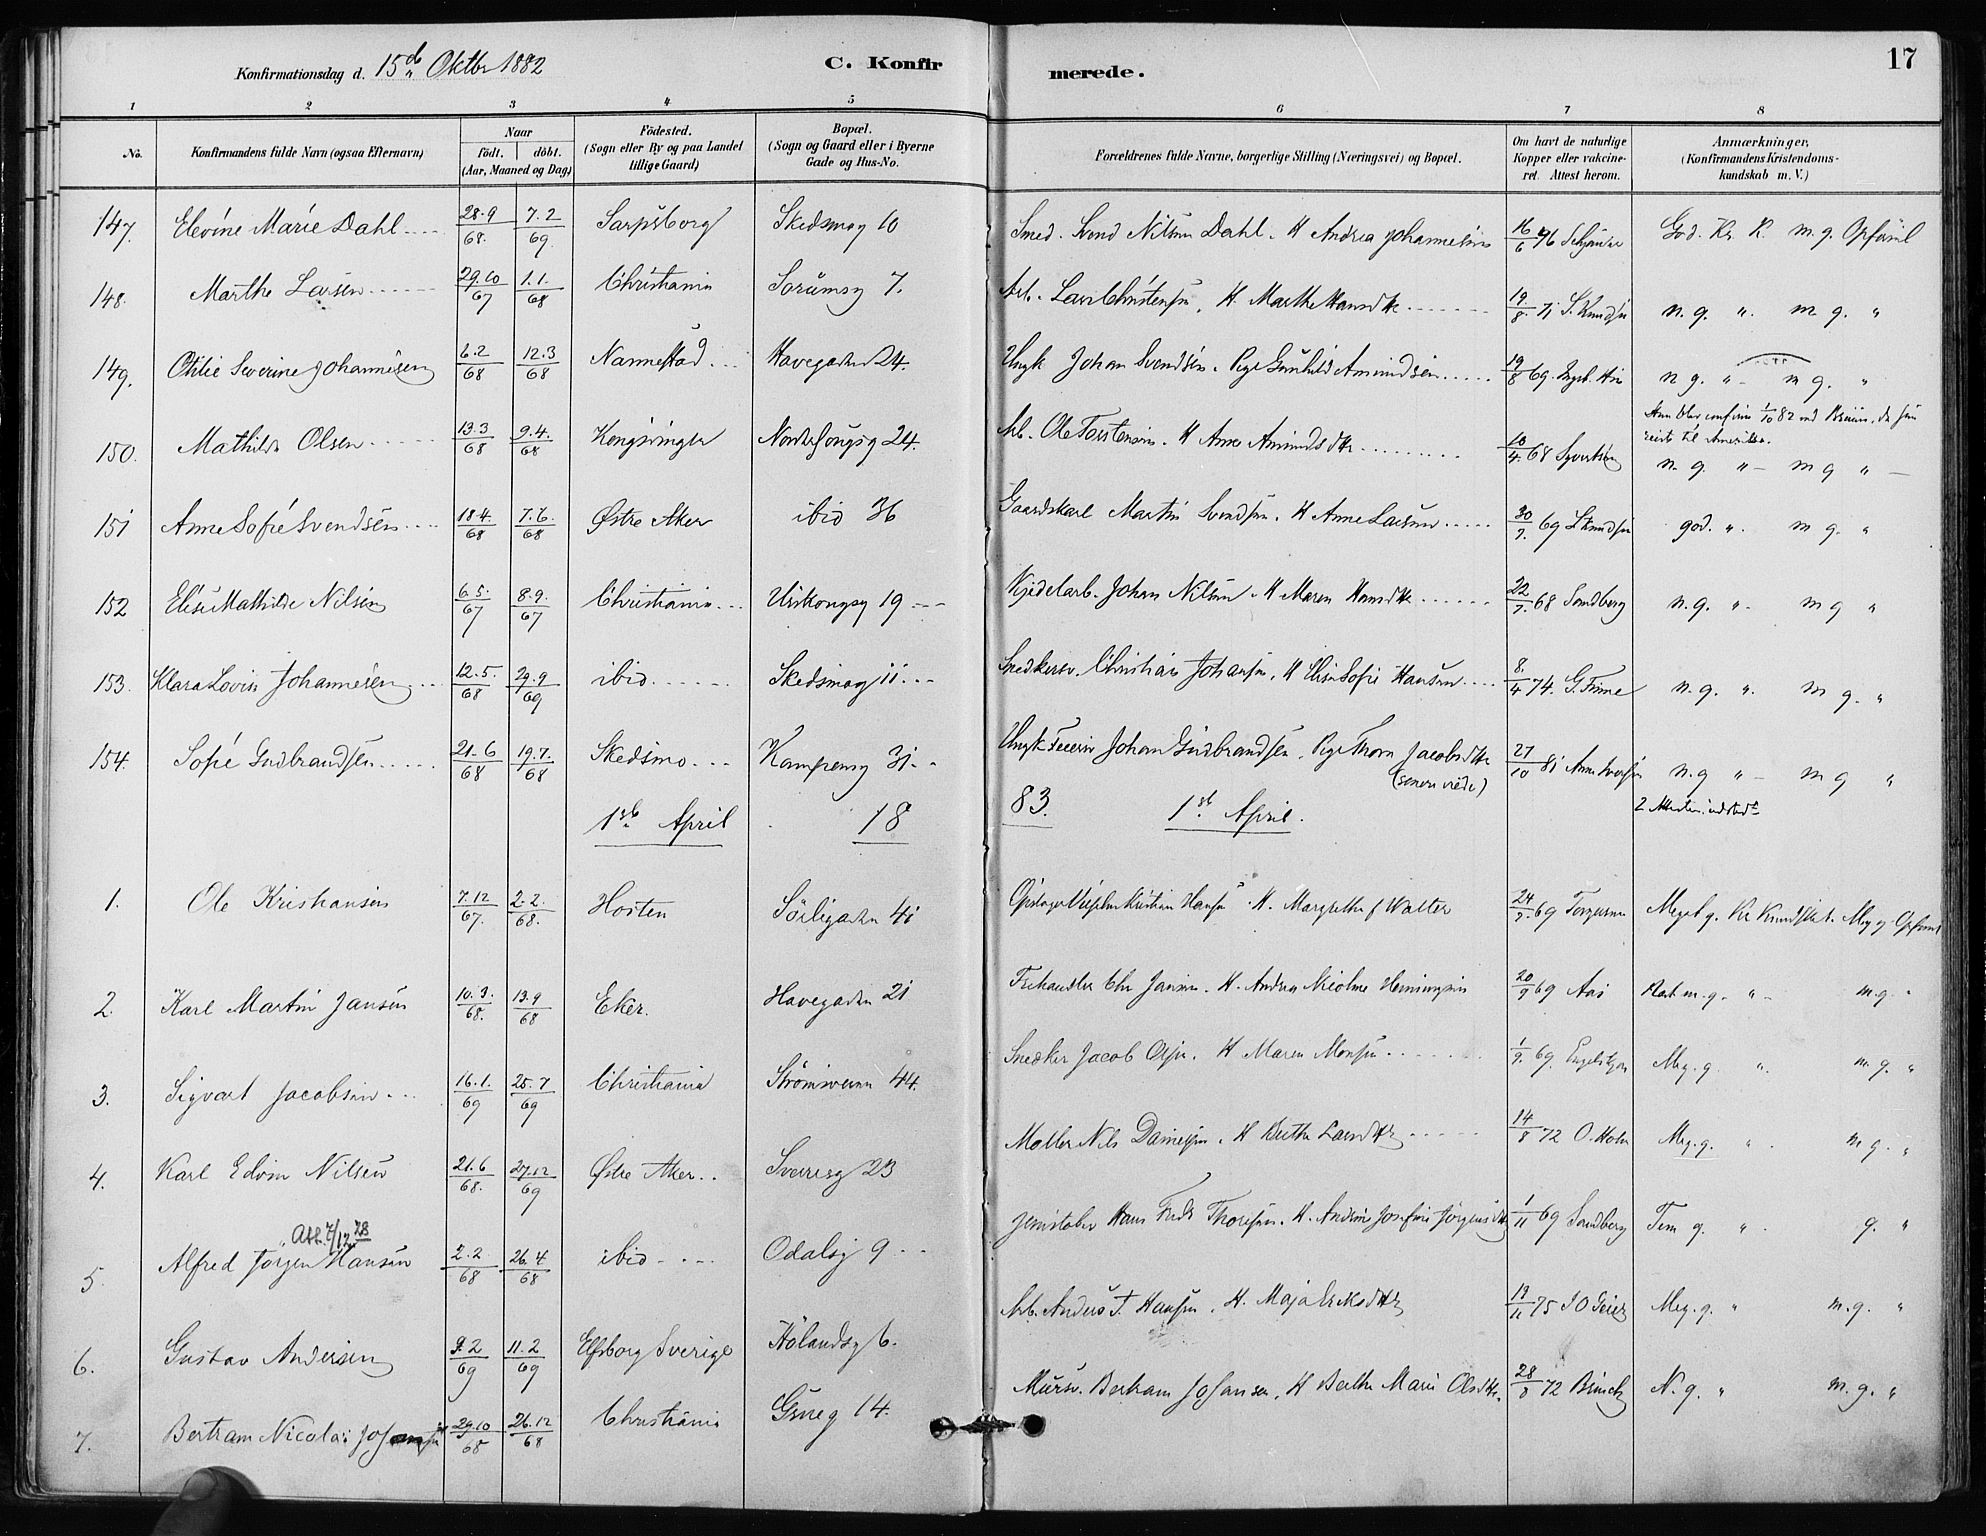 Konfirmationsdag d. 15de Oktbr 1882 C. Konfirmerede. 17
1 2 3 4 5 6 7 8
No. Konfirmandens fulde Navn (ogsaa Efternavn) Naar født. døbt. (Aar, Maaned og Dag) Födested. (Sogn eller By og paa Landet tillige Gaard) Bopæl. (Sogn og Gaard eller i Byerne Gade og Hus-No. Forældrenes fulde Navne, borgerlige Stilling (Næringsvei) og Bopæl. Om havt de naturlige Kopper eller vakcineret. Attest herom. Anmærkninger, (Konfirmandens Kristendomskundskab m. V.)
147. Elevine Marie Dahl 28.9/68. 7.2/69. Sarpsborg Skedsmog 10 Smed. Svend Nilsen Dahl. H Andrea Johannesen 16/6 76 God. Kr. K. m. g. Opförsel
148. Marthe Larsen 29.10/67 1.1./68 Christiania Sorumsg 7. Arb. Lars Christensen, H. Marthe Hansdtr 19/8. 71 S. Knudsen n. g. " m g. "
149. Otilie Severine Johannesen 6.2/68 12.3/68 Nannestad Havegaden 24. Ungk Johan Svendsen. Pige Gunhild Amundsen 19/8 69. n g. " m g. "
150. Mathilde Olsen 13.3/68 9.4./68 Kongsvinger 24. Arb. Ole Torstensen. H Anne Amundsdtr 10/4. 68 Syvertsen
1/10 82 reiste til Amerika.
n. g. " m g "
151 Anne Sofie Svendsen 18.4./68 7.6/68 Østre Aker ibid 36 Gaardskarl Martin Svendsen. H Anne Larsen 30/7. 69 S Knudsen god. " m g. "
152 Elise Mathilde Nilsen 6.5./67 8.9./67 Christiania Urskougsg 19 Kjedelarb. Johan Nilsen H Maren Hansdtr 22/7. 68 Sandberg n. g. " m g "
153. Klara Lovise Johannesen 12.5./68 29.9/69 ibid Skedsmog 11 Snedkersv. Christian Johansen, H Elise Sofie Hansen 8./4 74. G. Finne n. g. " m g. "
154. Sofie Gudbrandsen 21.6/68 19.7./68 Skedsmo Kampensg 31 Ungk Feierse Johan Gudbrandsen. Pige Thora Jacobsdtr (senere viede) 27/10 81 n. g " m g "
1st April 18 83. 1st April.
1. Ole Kristiansen 7.12/67. 2.2./68. Horten Sörligaden 41 Kristian Hansen H. Margrethe f Walter 24/9. 69 Torgersen Meget g. Kr Kundskab. Meg g Opförsel
2. Karl Martin Jansen 10.3./68. 13.9/68 Eker. Havegaden 21 Chr Jansen. H. Andrea Nicoline Henningsen 20/9 69 Aas m. g. " m. g. "
3. Sigvart Jacobsen 16.1./69 25.7/69 Christiania Strömsveien 44. Snedker Jacob Olsen. H Maren Monsen 1/9. 69. Meg. g. " m. g. "
4. Karl Edvin Nilsen 21.6/68. 27.12/69 Østre Aker Sverresg 23 Møller Nils Danielsen. H Berthe Larsdtr 14/8 72 O. Holm Meg. g. " m g. "
Att. 7/12 28
5. Alfred Jørgen Hansen 2.2./68 26.4/68 ibid Odalsg 9 Jernstöber Hans Fredr Thoresen. H. Andrine Josefine Jørgensdtr 1/11 69 Sandberg Tem g. " g. "
6. Gustav Andersen 9.2/69 11.2/69 Elfsborg Sverige Hölandsg 6. Arb. Anders T. Hansen. H. Maja Eriksdtr 19/11 75 J O Geier Meg. g. " m. g. "
7. Bertram Nicolai Johansen 29.10/68 26.12/68 Christiania Grueg 14. Mursv. Bertram Johansen, H Berthe Marie Olsdtr. 28/8 72 Brinch N. g. " m. g. "